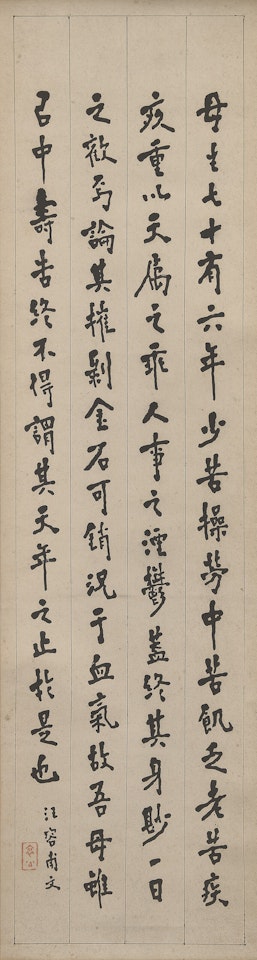 母生七十有六年少苦操勞中苦飢乏老苦疾
疢重以天屬之乖人事之湮鬱蓋終其身尠一日
之歡焉論其摧剝金石可銷況于血氣故吾母雖
㠯中壽告終不得謂其天年之止於是也
汪容甫文